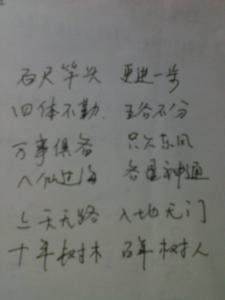 百尺竿头 更进一步
四体不勤 五谷不分
万事俱备 只欠东风
八仙过海 各显神通
上天无路 入地无门
十年树木 百年树人